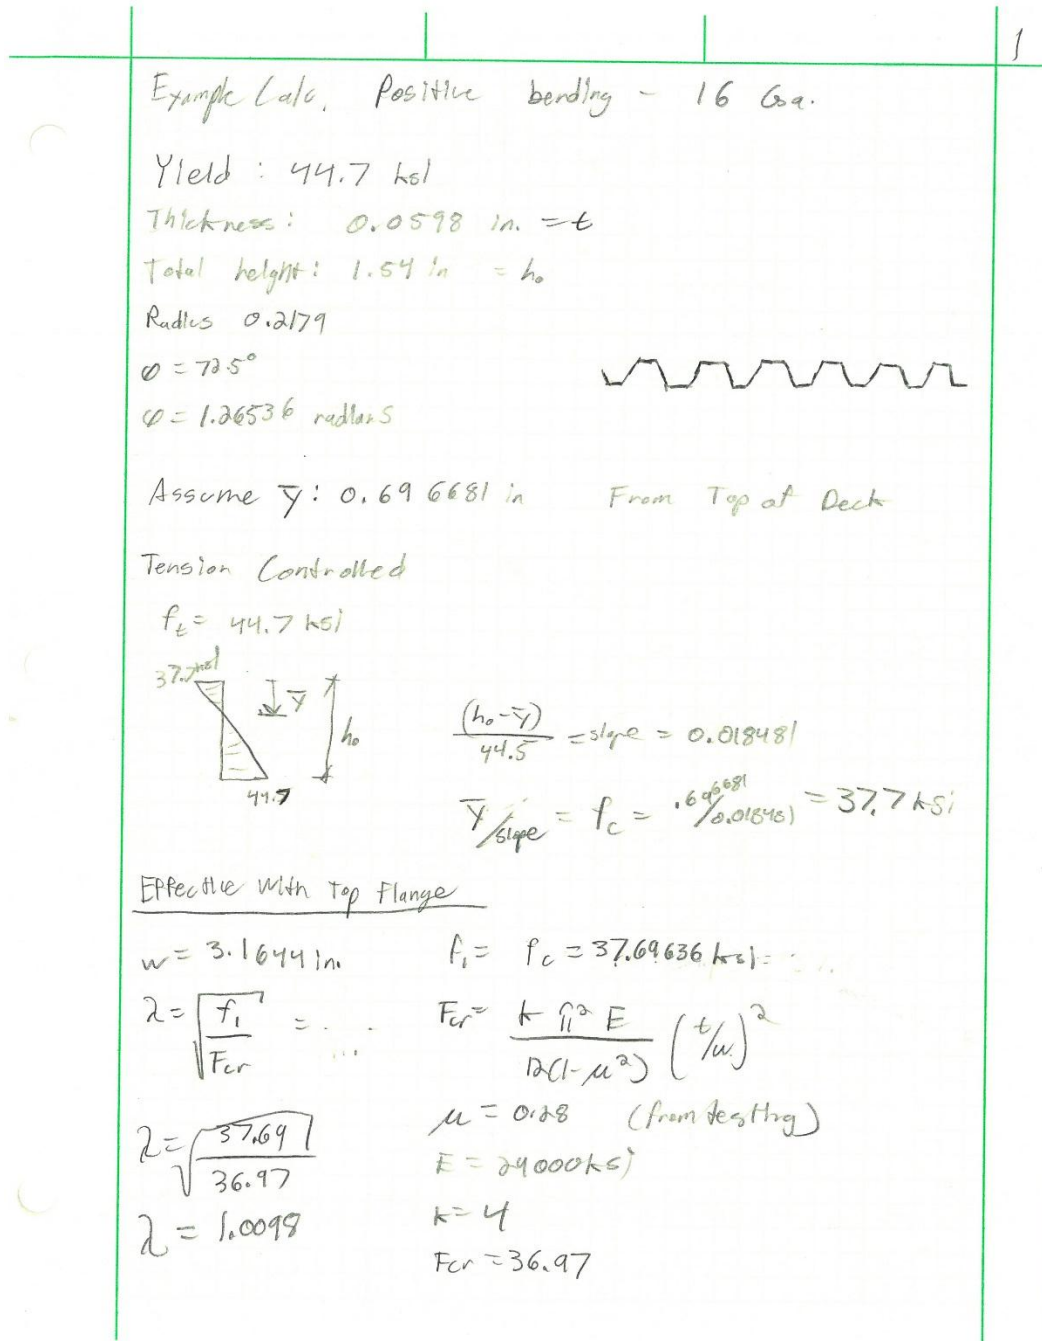 1
Example Calc. Positive bending - 16 Ga.
Yield : 44.7 ksi
Thickness: 0.0598 in. = t
Total height: 1.54 in = h₀
Radius 0.2179
φ = 72.5°
φ = 1.26536 radians
Assume ȳ: 0.696681 in From Top of Deck
Tension Controlled
f_t = 44.7 ksi
37.7 ksi
ȳ
h₀
44.7
(h₀-ȳ)/44.5 = slope = 0.018481
ȳ/slope = f_c = .696681/0.018481 = 37.7 ksi
Effective Width Top Flange
w = 3.1644 in. f₁ = f_c = 37.69636 ksi
λ = √(f₁/Fcr) = .... Fcr = k π² E/12(1-μ²) (t/w)²
...
μ = 0.28 (from testing)
λ = √(37.69/36.97)
E = 29000 ksi
λ = 1.0098
k = 4
Fcr = 36.97